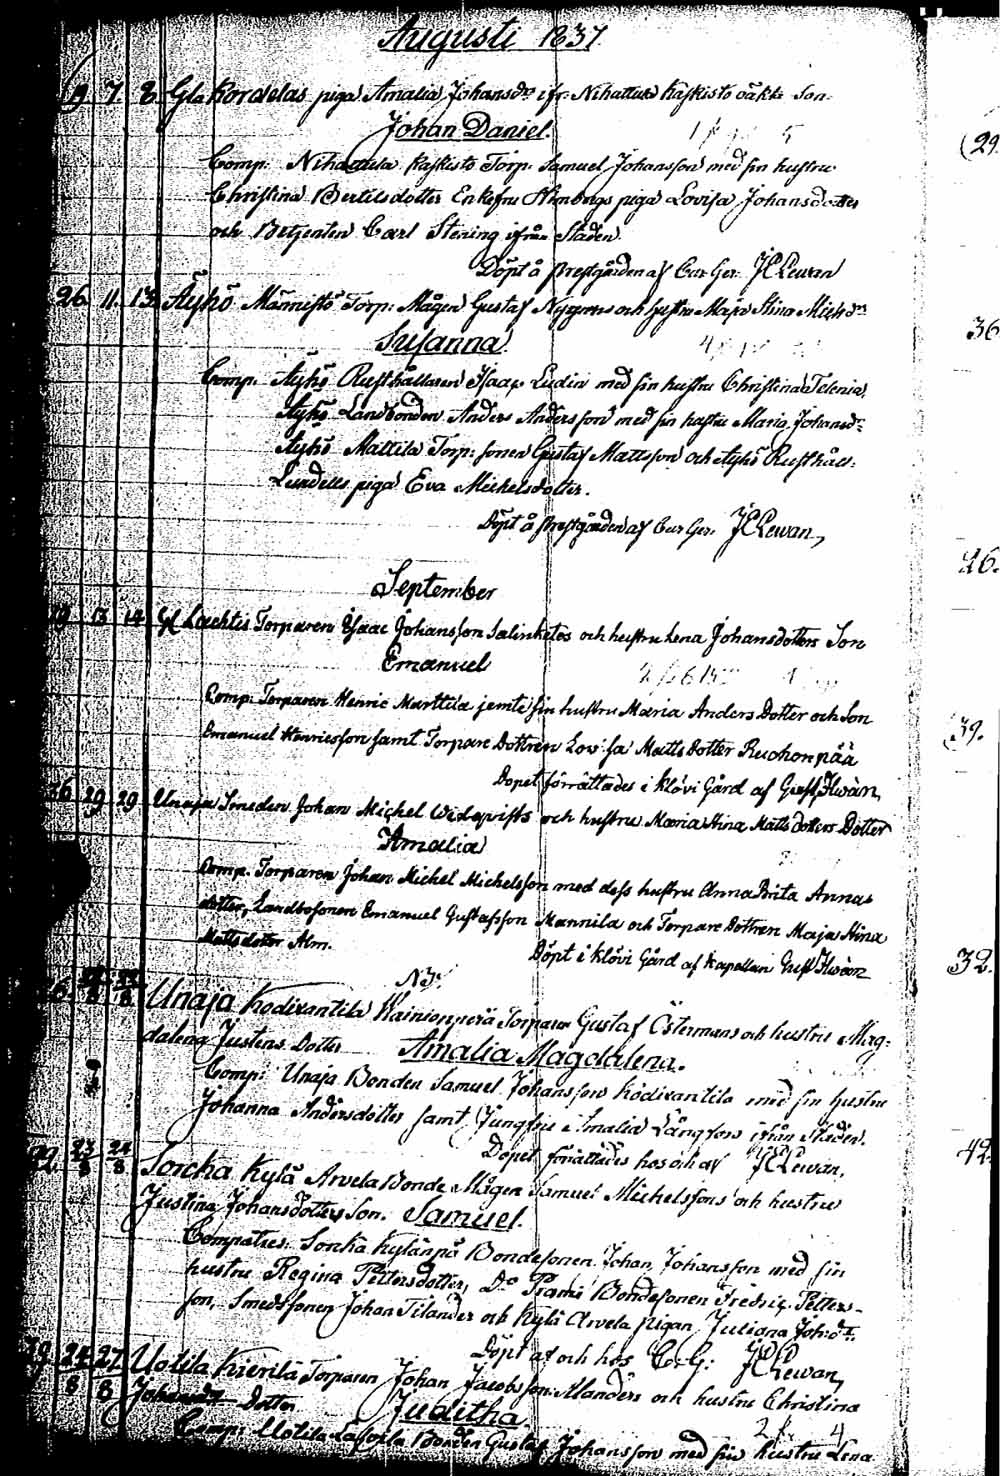 Augusti 1837
19. 7. 8. Gla Kordelas piga Amalia Johansdr ifr. Nihattula Kaskisto Son
Johan Daniel.
Comp: Nihattula Kaskisto Torp: Samuel Johansson med sin hustru
Christina Bertilsdotter Enkefru piga Lovisa Johansdotter
och Betjenten Carl Stening ifrån Staden.
Döpt å prestgården af Cur Ger: JCLewan
26. 11. 13. Äyhö Männistö Torp: Mågen Gustaf Nygrens och hustru Maja Stina Michdr
Susanna.
Comp. Äyhö Rusthållaren Isaac Ludin med sin hustru Christina Telenia,
Äyhö Landbonden Anders Andersson med sin hustru Maria Johansdr
Äyhö Mattila Torp: sonen Gustaf Mattsson och Äyhö Rusthåll:
Lundells piga Eva Michelsdotter.
Döpt å prestgården af Cur Ger. JCLewan,
September
13 14 Gl Lachtis Torparen Isaac Johansson Salinketos och hustru Lena Johansdotters Son
Emanuel
Comp: Torparen Henric Marttila jemte sin hustru Maria Anders Dotter och Son
Emanuel Henricsson samt Torpare Dottren Lovisa Matts Dotter Ruohonpää
Dopet förrättades i Klövi Gård af Gust. Ilwan,
26 29 29 Unaja Smeden Johan Michel Widqvists och hustru Maria Stina Matts dotters Dotter
Amalia
Comp. Torparen Johan Michel Michelsson med dess hustru Anna Brita Annas
dotter, Landbosonen Emanuel Gustafsson Mannila och Torpare Dottren Maja Stina
Mattsdotter Alm. Döpt i Klövi Gård af Kapellan Gust Ilwan
N3:
Unaja Kodixantila Wainionperä Torparen Gustaf Östermans och hustru Mag-
dalena Justens Dotter Amalia Magdalena.
Comp: Unaja Bonden Samuel Johansson Kodixantila med sin hustru
Johanna Andersdotter samt Jungfru Amalia Långfors ifrån Staden.
Dopet förrättades hos och af JCLewan,
22. 23/8 24/8 Sorcka Kylä Arvela Bonde Mågen Samuel Michelssons och hustru
Justina Johansdotters Son. Samuel.
Compatres: Sorcka Kylänpä Bondesonen Johan Johansson med sin
hustru Regina Pettersdotter, Do Prami Bondesonen Fredric Petters-
son, Smedssonen Johan Tilander och Kylä Arvela pigan Juliana Johdr.
Döpt af och hos C.G: JCLewan,
29. 24/8 27/8 Uotila Kierilä Torparen Johan Jacobsson Alanders och hustru Christina
Johansdr Dotter Juditha.
Comp: Uotila Bonden Gustaf Johansson med sin hustru Lena
(29.
36
26.
(39.
32.
42.